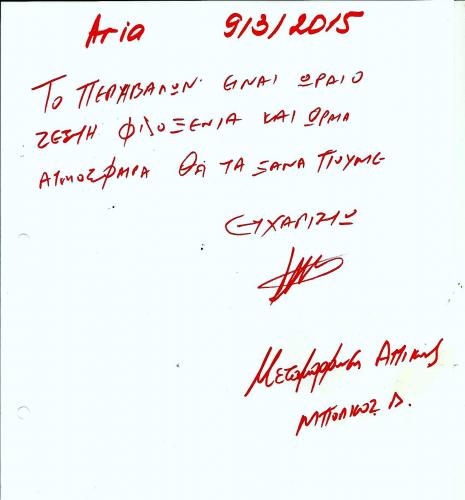 Aria 9/3/2015
ΤΟ ΠΕΡΗΒΑΛΩΝ ΕΙΝΑΙ ΩΡΑΙΟ
ΖΕΣΤΗ ΦΙΛΟΞΕΝΙΑ ΚΑΙ ΩΡΜΑ
ΑΤΜΟΣΦΑΙΡΑ ΘΑ ΤΑ ΞΑΝΑ ΠΙΟΥΜΕ
ΕΥΧΑΡΙΣΤΩ
Μεταμόρφωση Αττικής
ΜΠΟΛΙΚΟΣ Δ.